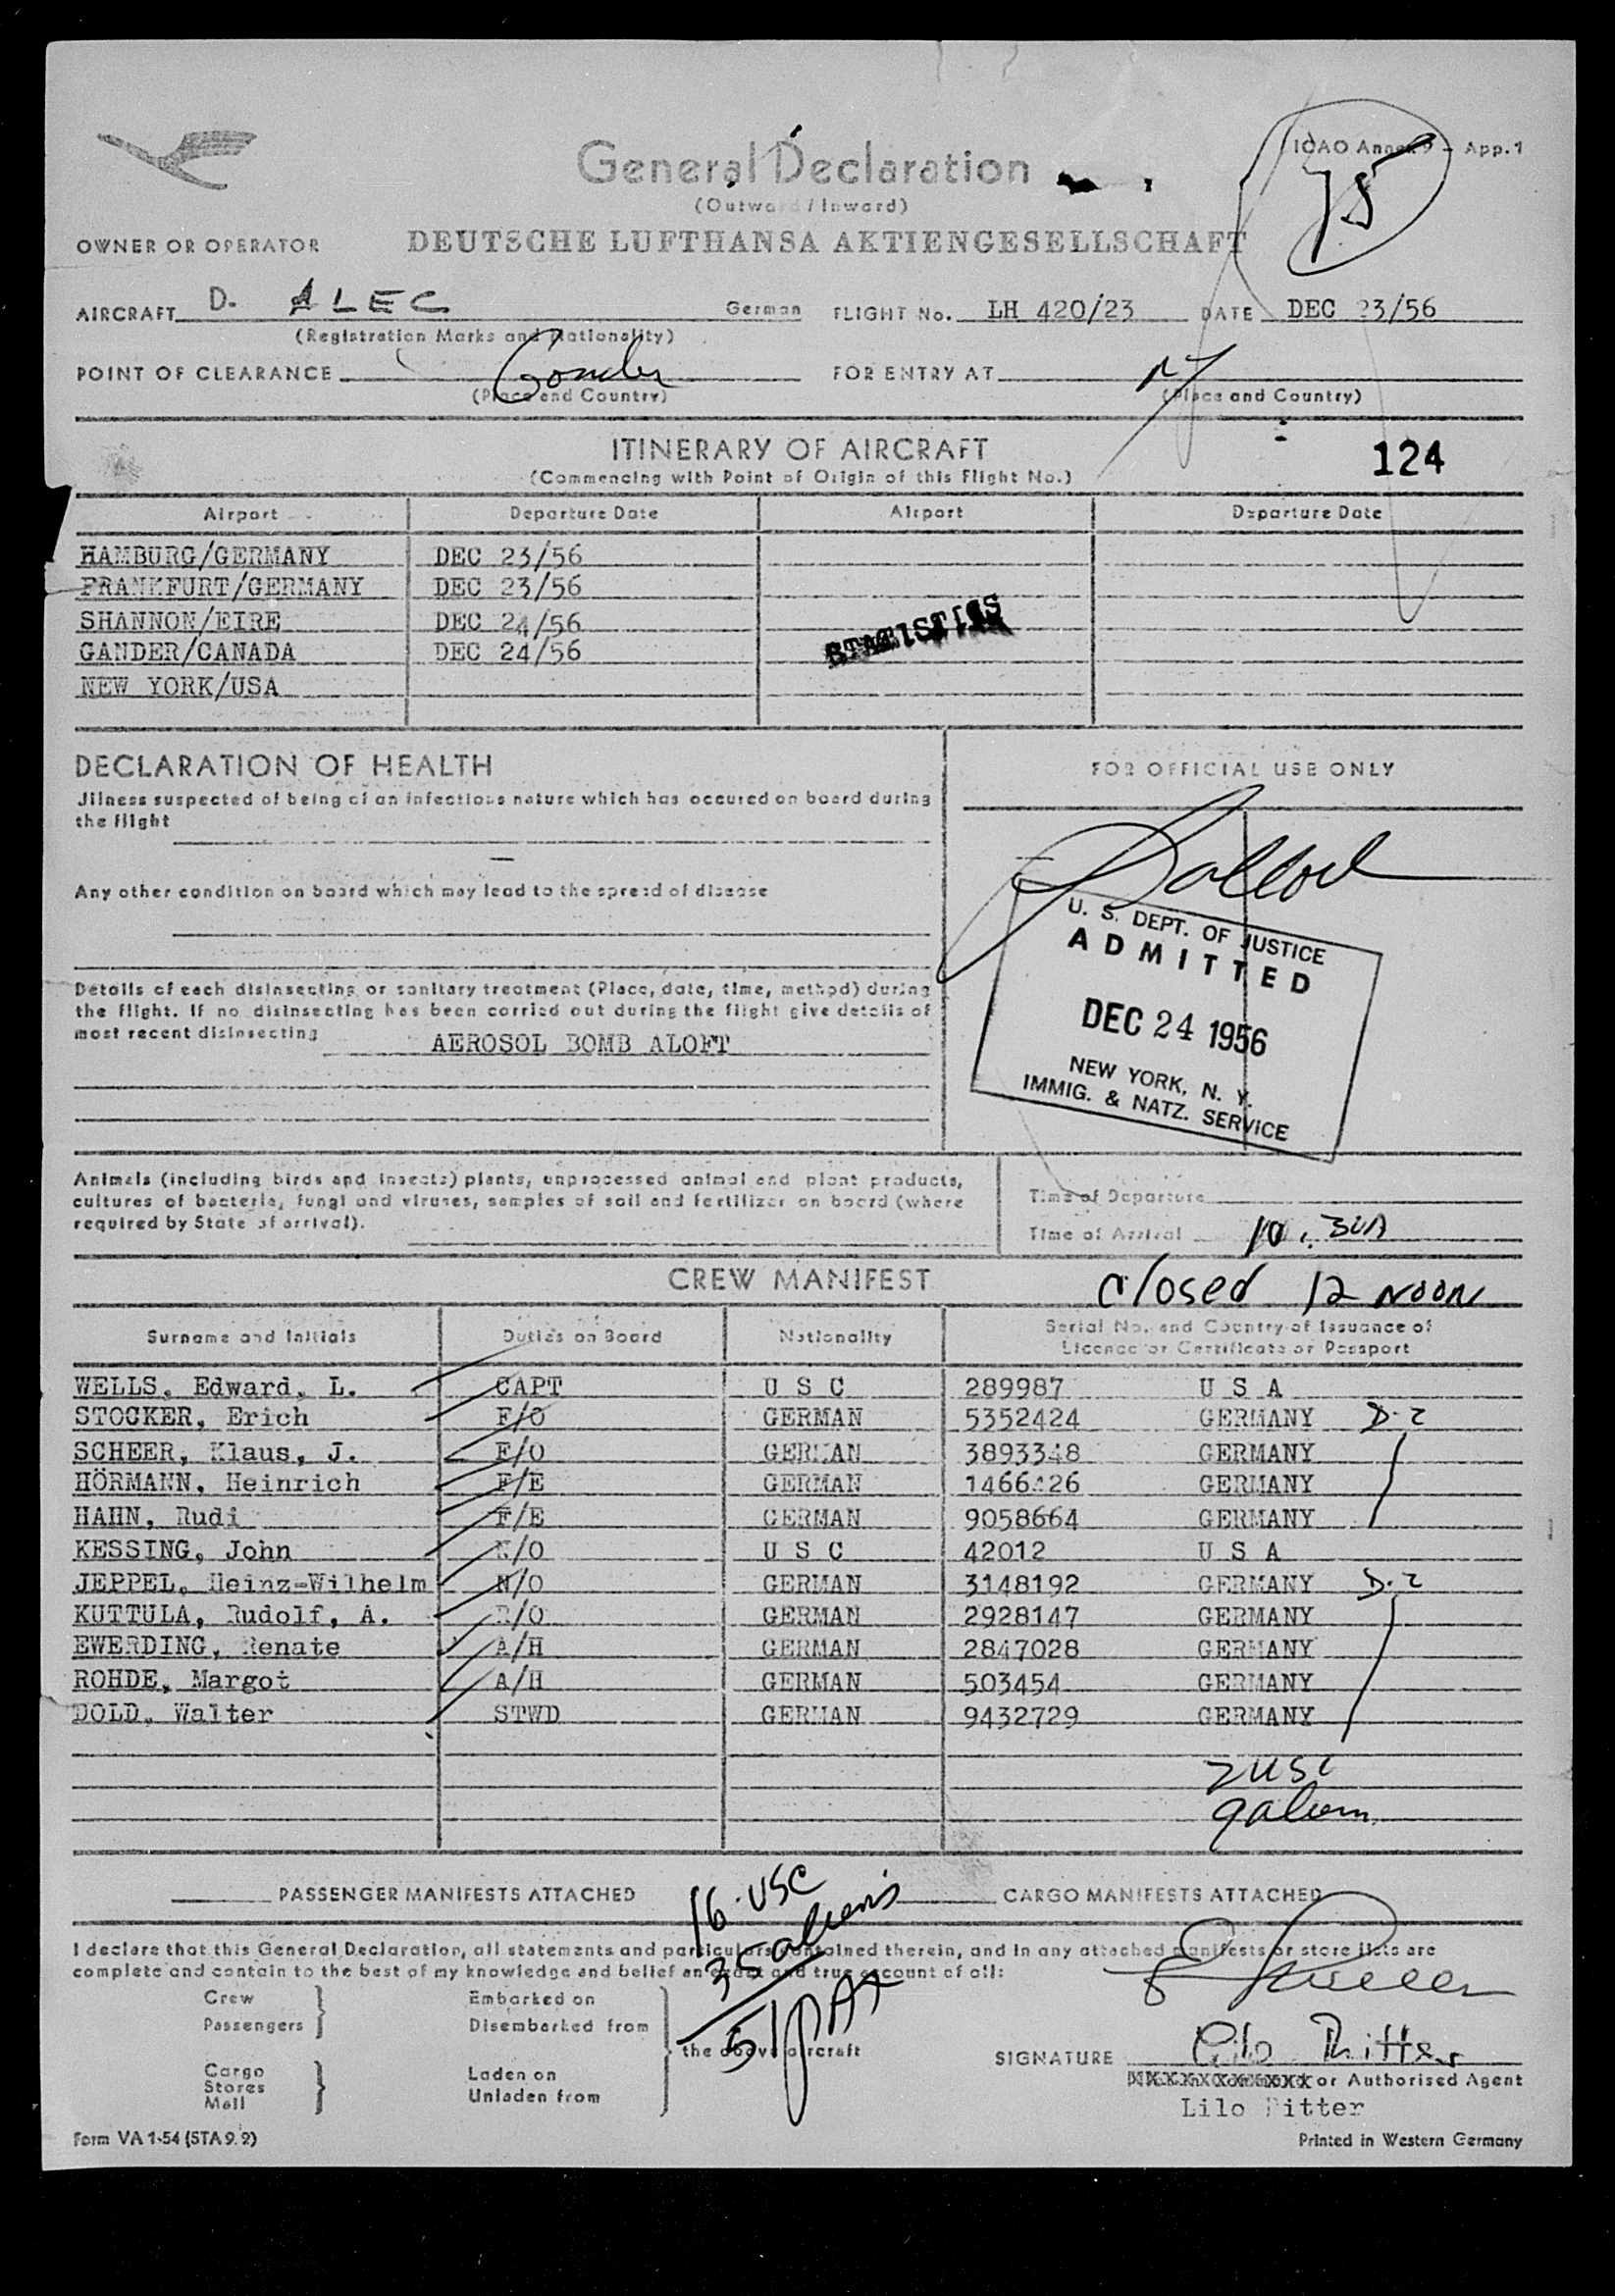 ICAO Annex 9 - App. 1
75
General Declaration
(Outward / Inward)
OWNER OR OPERATOR DEUTSCHE LUFTHANSA AKTIENGESELLSCHAFT
AIRCRAFT D. ALEC German FLIGHT No. LH 420/23 DATE DEC 23/56
(Registration Marks and Nationality)
POINT OF CLEARANCE Gander FOR ENTRY AT NY
(Place and Country) (Place and Country)
ITINERARY OF AIRCRAFT
124
(Commencing with Point of Origin of this Flight No.)
Airport Departure Date Airport Departure Date
HAMBURG/GERMANY DEC 23/56
FRANKFURT/GERMANY DEC 23/56
SHANNON/EIRE DEC 24/56
STATISTICS
GANDER/CANADA DEC 24/56
NEW YORK/USA
DECLARATION OF HEALTH
Jilness suspected of being of an infectious nature which has occured on board during
the flight
Any other condition on board which may lead to the spread of disease
Details of each disinsecting or sanitary treatment (Place, date, time, method) during
the flight. If no disinsecting has been carried out during the flight give details of
most recent disinsecting AEROSOL BOMB ALOFT
FOR OFFICIAL USE ONLY
U. S. DEPT. OF JUSTICE
ADMITTED
DEC 24 1956
NEW YORK, N. Y.
IMMIG. & NATZ. SERVICE
Animals (including birds and insects) plants, unprocessed animal and plant products,
cultures of bacteria, fungi and viruses, samples of soil and fertilizer on board (where
required by State of arrival).
Time of Departure
Time of Arrival 10:30A
CREW MANIFEST
closed 12 NOON
Surname and Initials Duties on Board Nationality Serial No. and Country of Issuance of
Licence or Certificate or Passport
WELLS, Edward, L. CAPT U S C 289987 U S A
STOCKER, Erich F/O GERMAN 5352424 GERMANY D-2
SCHEER, Klaus, J. F/O GERMAN 3893348 GERMANY
HÖRMANN, Heinrich F/E GERMAN GERMANY
HAHN, Rudi F/E GERMAN 9058664 GERMANY
KESSING, John N/O U S C 42012 U S A
JEPPEL, Heinz-Wilhelm N/O GERMAN 3148192 GERMANY D-2
KUTTULA, Rudolf, A. R/O GERMAN 2928147 GERMANY
EWERDING, Renate A/H GERMAN 2847028 GERMANY
ROHDE, Margot A/H GERMAN 503454 GERMANY
DOLD, Walter STWD GERMAN 9432729 GERMANY
2 USC
9 aliens
PASSENGER MANIFESTS ATTACHED CARGO MANIFESTS ATTACHED
16 - USC
35 aliens
51 PAX
I declare that this General Declaration, all statements and particulars contained therein, and in any attached manifests or store lists are
complete and contain to the best of my knowledge and belief an exact and true account of all:
Crew Embarked on
Passengers Disembarked from
the above aircraft
Cargo Laden on
Stores Unladen from
Mail
SIGNATURE Lilo Ritter
or Authorised Agent
Lilo Ritter
Form VA 1-54 (STA 9.2) Printed in Western Germany